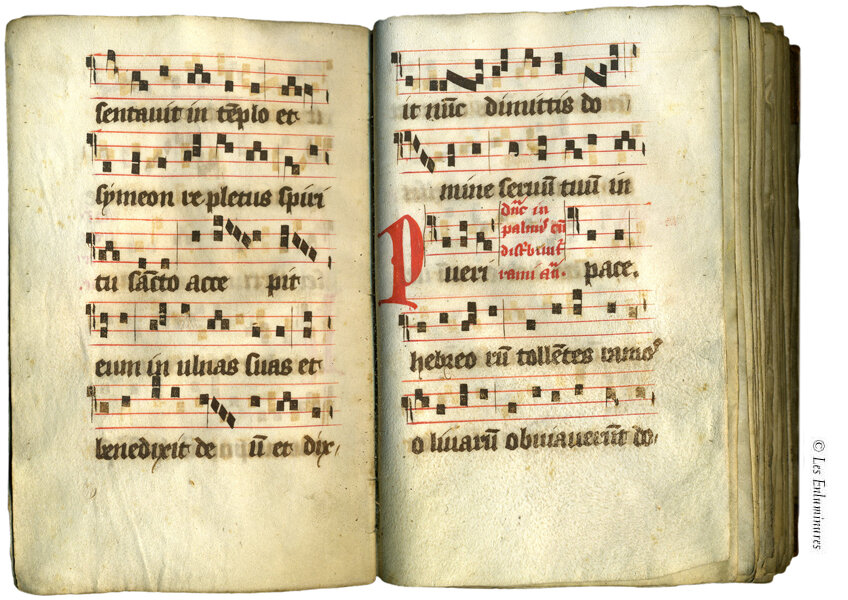 sentauit in tēplo et
symeon re pletus spiri
tu sācto acce pit
eum in ulnas suas et
benedixit de ū et dix
it nūc dimittis do
mine seruū tuū in
dūc in
palmis cū
ueri pace.
hebreo rū tollētes ramos
o liuarū obuiauerūt do
© Les Enluminures